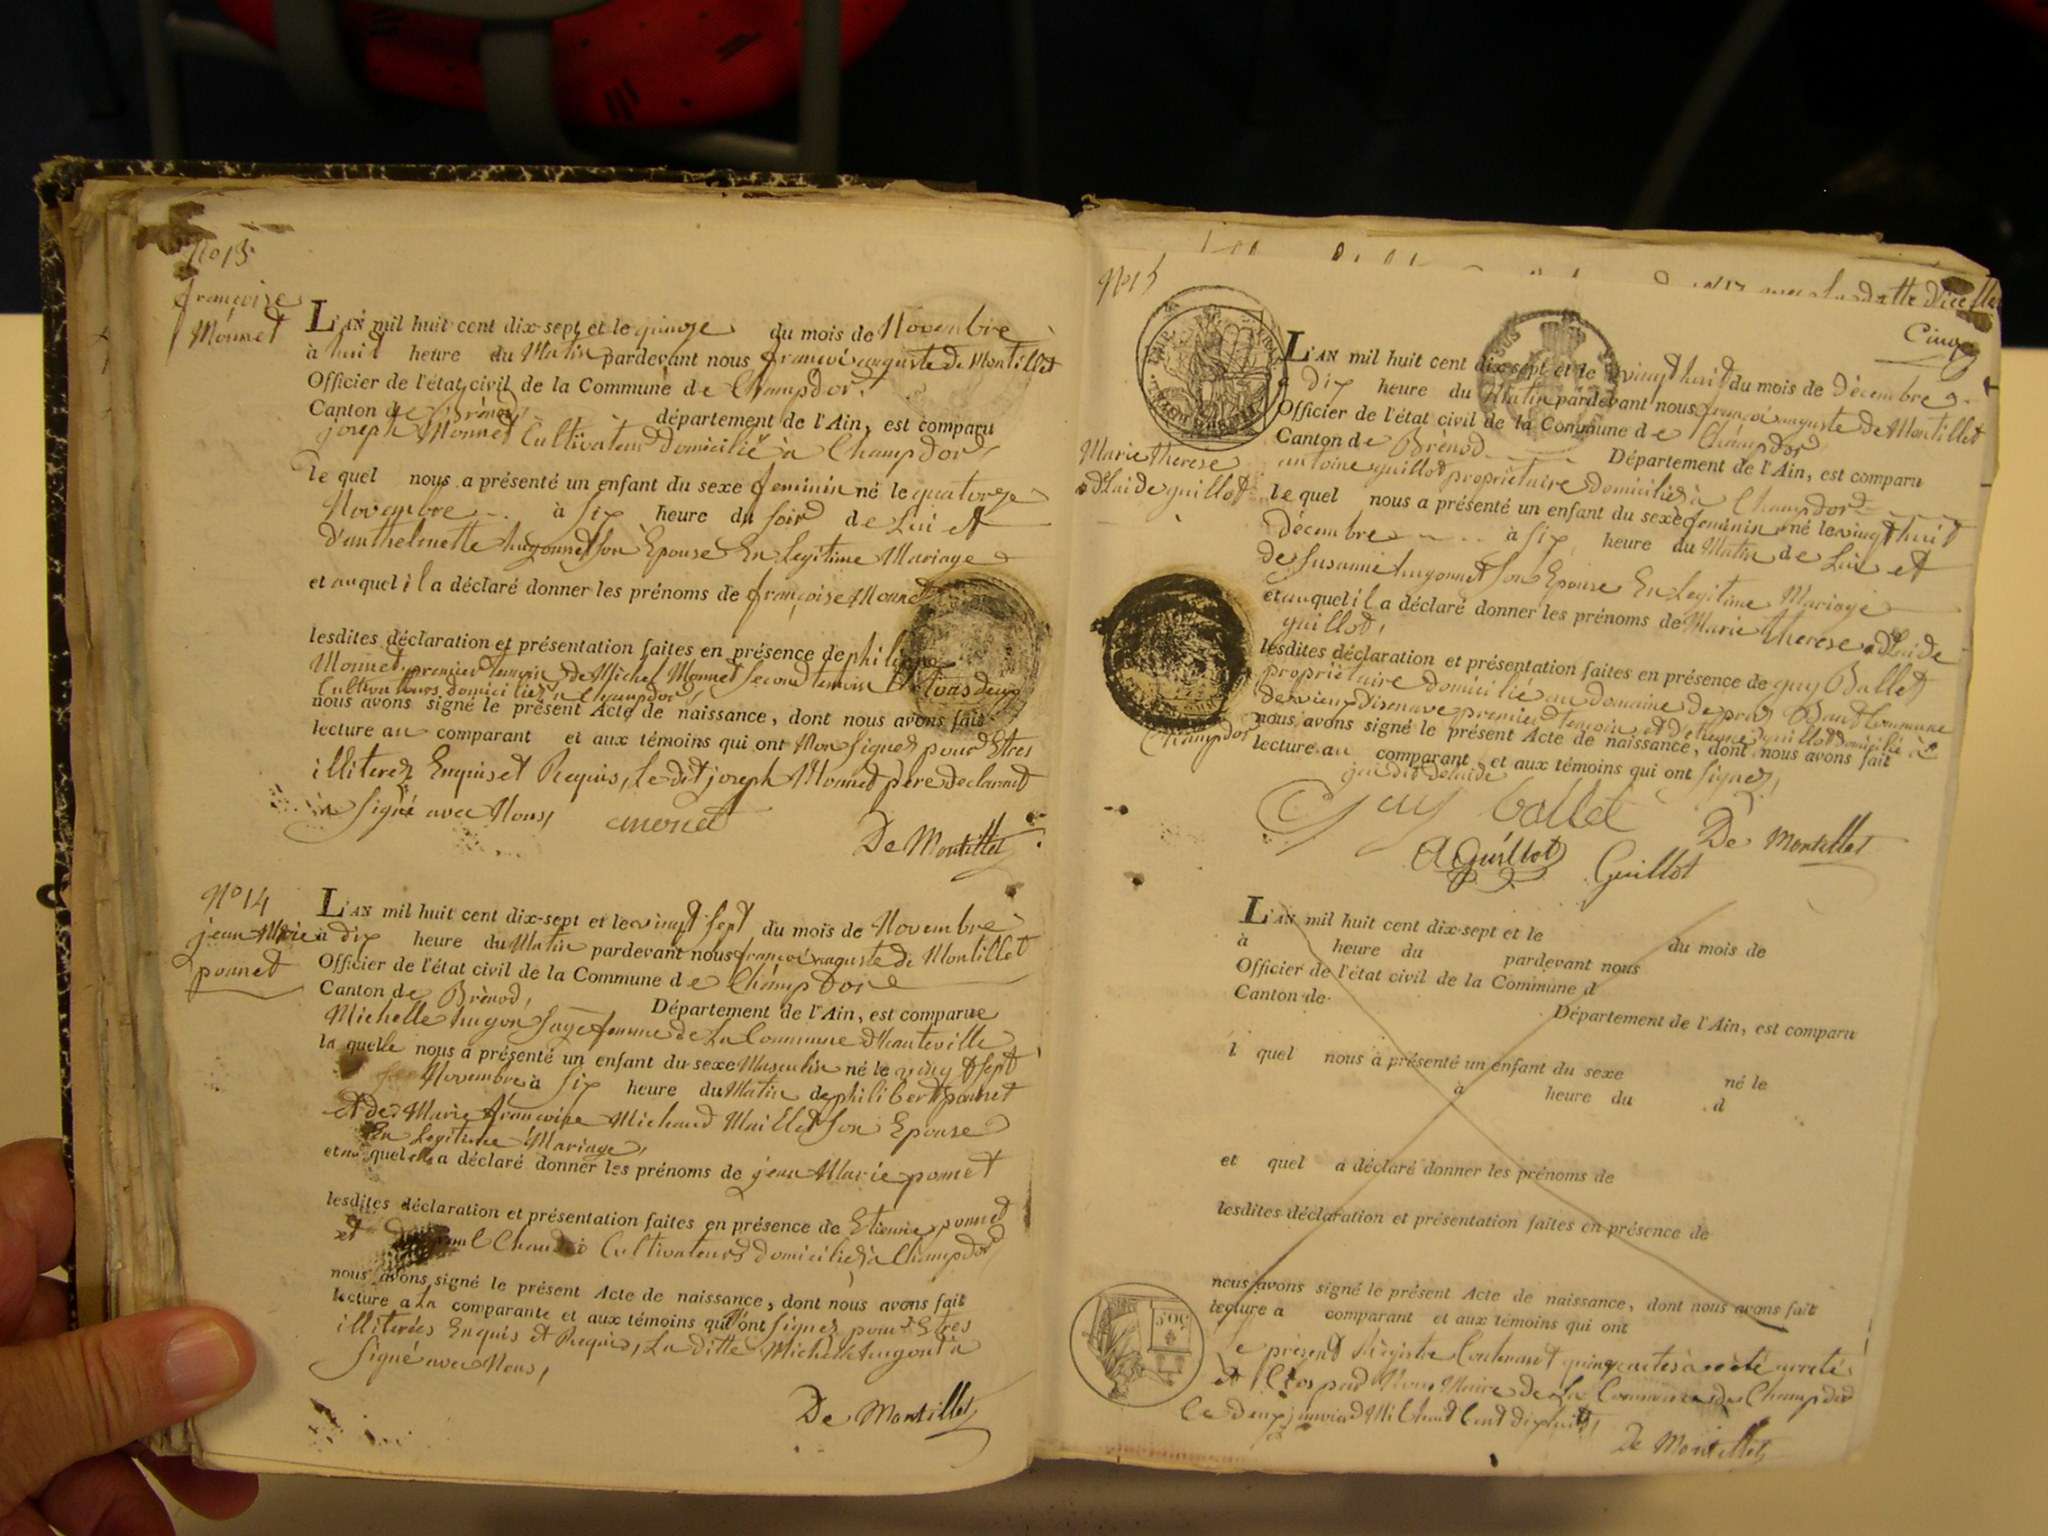 No 13
françoise
Monnet
L'AN mil huit cent dix-sept et le quinze du mois de Novembre
à huit heure du Matin pardevant nous françois auguste de Montillet
Officier de l'état civil de la Commune de Champdor.
Canton de Brénod, département de l'Ain, est comparu
joseph Monnet Cultivateur domicilié à Champdor,
le quel nous a présenté un enfant du sexe feminin né le quatorze
Novembre à six heure du soir de Lui et
d'anthelmette hugonnet son Epouse En Legitime Mariage
et auquel il a déclaré donner les prénoms de françoise Monnet
lesdites déclaration et présentation faites en présence de philippe
Monnet premier temoin, de Michel Monnet second temoin tous deux
Cultivateurs domiciliez a Champdor,
nous avons signé le présent Acte de naissance, dont nous avons fait
lecture au comparant et aux témoins qui ont Non signez pour Etres
illiterez Enquis et Requis, Le dit joseph Monnet pere declarant
a signé avec Nous, monet
De Montillet
No 14
jean Marie
ponnet
L'AN mil huit cent dix-sept et le vingt sept du mois de Novembre
à dix heure du Matin pardevant nous françois auguste de Montillet
Officier de l'état civil de la Commune de Champdore
Canton de Brénod, Département de l'Ain, est comparue
Michelle hugon sage femme de La Commune d'hauteville
la quelle nous a présenté un enfant du sexe Masculin né le vingt sept
Novembre à six heure du Matin de philibert ponnet
et de Marie françoise Michaud Maillet son Epouse
En Legitime Mariage,
et au quel elle a déclaré donner les prénoms de jean Marie ponnet
lesdites déclaration et présentation faites en présence de Etienne ponnet
et Cultivateurs domiciliez à Champdor
nous avons signé le présent Acte de naissance, dont nous avons fait
lecture a La comparante et aux témoins qui ont signez pour Etres
illiterées Enquis et Requis, La ditte Michelle hugon a
signé avec Nous,
De Montillet
la datte d'icelle
Cinq
No 15
Marie therese
adelaide guillot
L'AN mil huit cent dix-sept et le vingt huit du mois de décembre
à dix heure du Matin pardevant nous françois auguste de Montillet
Officier de l'état civil de la Commune de Champdor
Canton de Brénod Département de l'Ain, est comparu
antoine guillot propriétaire domicilié à Champdor
le quel nous a présenté un enfant du sexe feminin né le vingt huit
décembre à six heure du Matin de Lui et
de Susanne hugonnet son Epouse En Legitime Mariage
et auquel il a déclaré donner les prénoms de Marie therese adelaide
guillot,
lesdites déclaration et présentation faites en présence de guy Ballet
propriétaire domicilié au domaine de Commune
de vieux d'isenave premier temoin et d'etienne guillot domicilié à
Champdor
nous avons signé le présent Acte de naissance, dont nous avons fait
lecture au comparant et aux témoins qui ont signez,
Guy ballet
De Montillet
A Guillot Guillot
L'AN mil huit cent dix-sept et le du mois de
à heure du pardevant nous
Officier de l'état civil de la Commune d
Canton de Département de l'Ain, est comparu
l quel nous a présenté un enfant du sexe né le
à heure du d
et quel a déclaré donner les prénoms de
lesdites déclaration et présentation faites en présence de
nous avons signé le présent Acte de naissance, dont nous avons fait
lecture a comparant et aux témoins qui ont
50 C
Le présent Régistre Contenant quinze actes a été arreté
et Clos par Nous Maire de La Commune de Champdor
Le deux janvier Mil huit Cent dix huit,
De Montillet